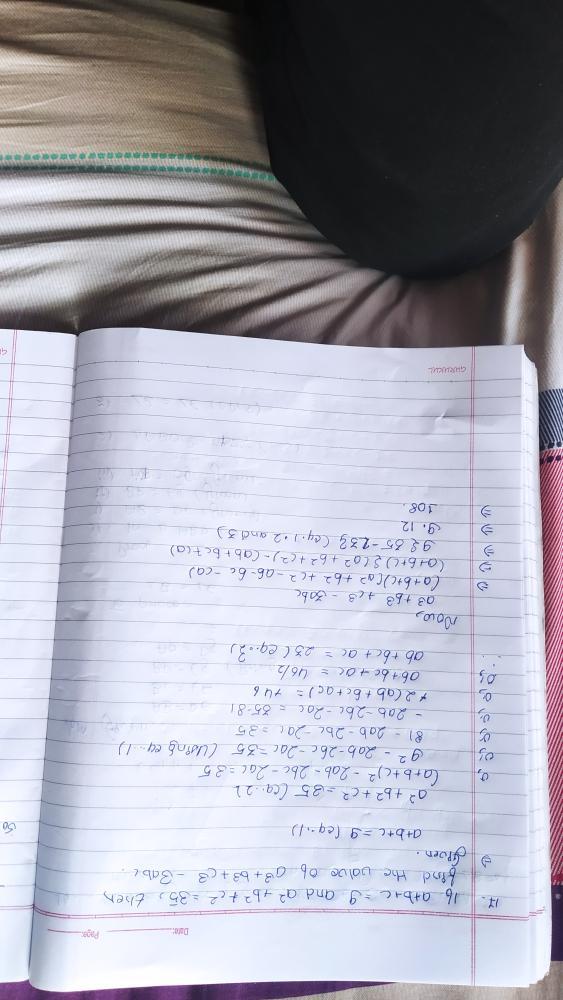 Date: Page:
17. If a+b+c = 9 and a² + b² + c² = 35, then
find the value of a3 + b3 + c3 - 3abc.
⇒ Given.
a+b+c = 9 (eq..1)
a² + b² + c² = 35 (eq..2)
or, (a+b+c)² - 2ab - 2bc - 2ac = 35
or, 9² - 2ab - 2bc - 2ac = 35 (Using eq..1)
or, 81 - 2ab - 2bc - 2ac = 35
or, - 2ab - 2bc - 2ac = 35 - 81
or, +2(ab + bc + ac) = +46
or, ab + bc + ac = 46/2
∴ ab + bc + ac = 23 (eq..3)
Now,
a3 + b3 + c3 - 3abc
⇒ (a+b+c)(a² + b² + c² - ab - bc - ca)
⇒ (a+b+c) {(a² + b² + c²) - (ab + bc + ca)
⇒ 9{35 - 23} (eq.1.2 and 3)
⇒ 9.12
⇒ 108.
GURUKUL